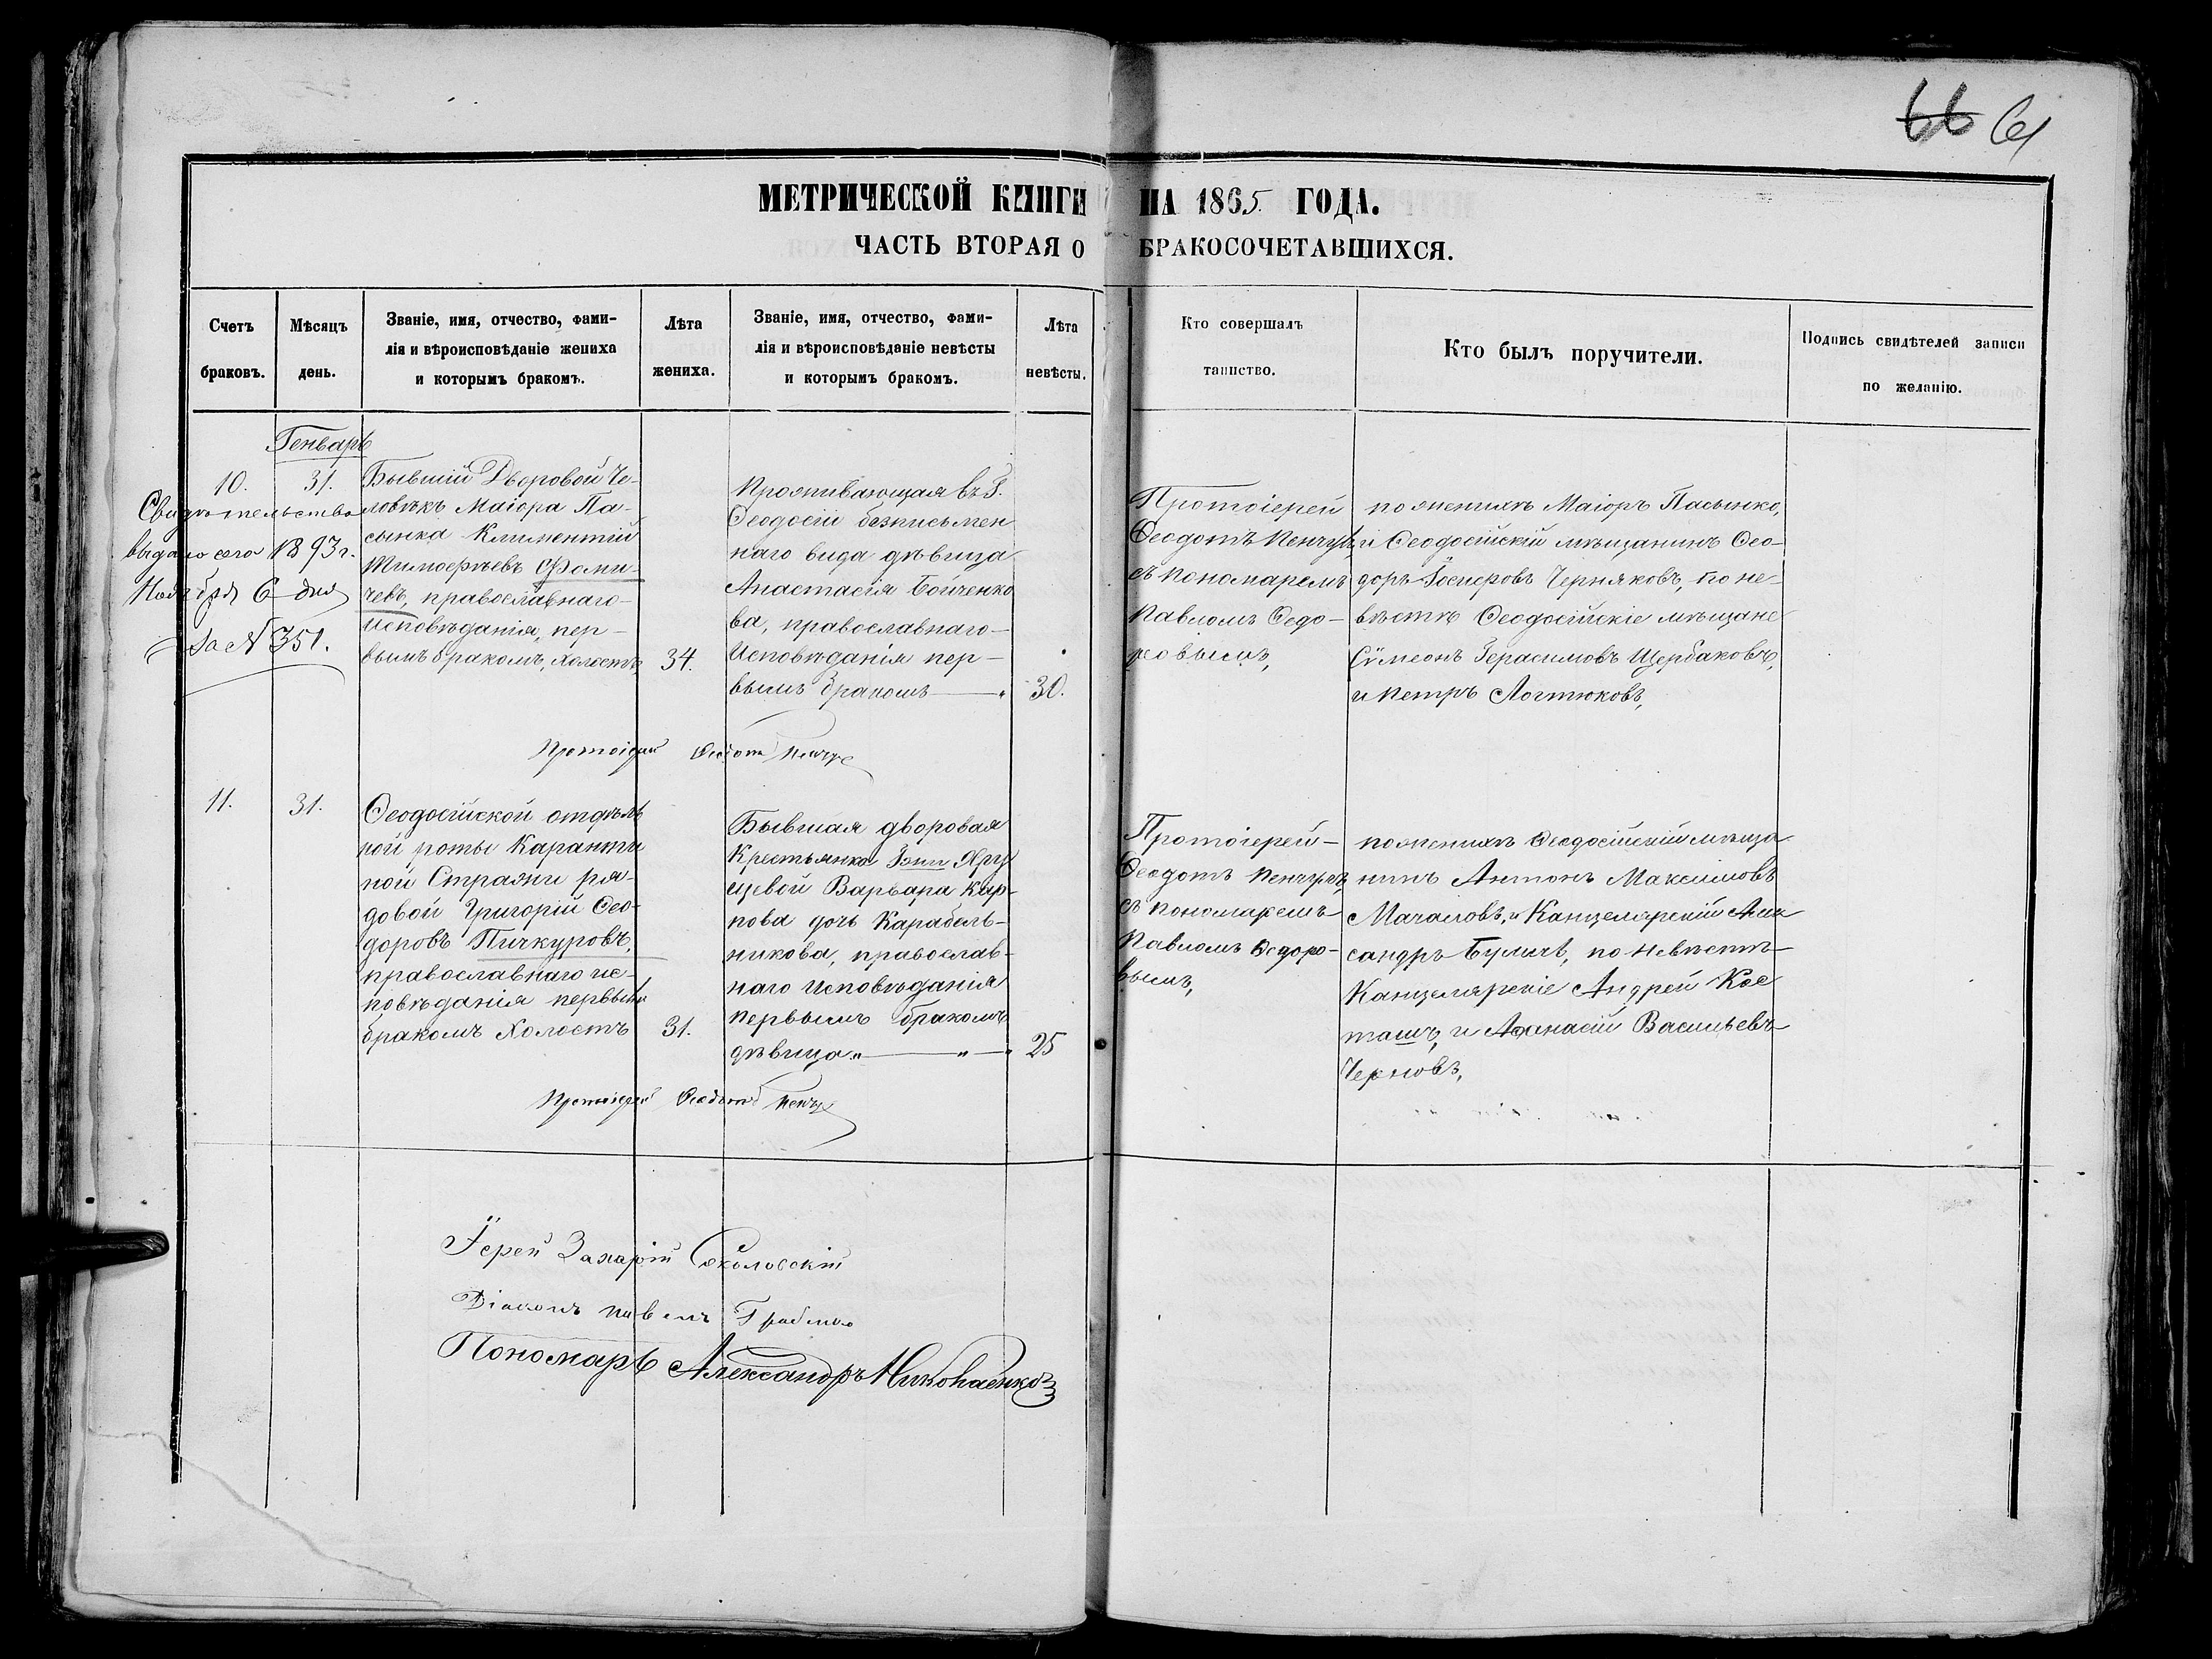 66 61
МЕТРИЧЕСКОЙ КНИГИ НА 1865 ГОДА.
ЧАСТЬ ВТОРАЯ О БРАКОСОЧЕТАВШИХСЯ.
Счетъ
браковъ.
Мѣсяцъ
день.
Званіе, имя, отчество, фами-
лія и вѣроисповѣданіе жениха
и которымъ бракомъ.
Лѣта
жениха.
Званіе, имя, отчество, фами-
лія и вѣроисповѣданіе невѣсты
и которымъ бракомъ.
Лѣта
невѣсты.
Кто совершалъ
таинство.
Кто былъ поручители.
Подпись свидѣтелей записи
по желанію.
Генварь
10.
31.
Свидѣтельство
выдано сего 1893 г.
Ноября 6 дня
за № 351.
Бывшій Дворовой Че-
ловѣкъ Маіора Па-
сынка Климентій
Тимофѣевъ Фоми-
чевъ, православнаго
исповѣданія, пер-
вымъ бракомъ, холостъ,
34.
Проживающая въ г.
Ѳеодосіи безписьмен
наго вида дѣвица
Анастасія Бойченко
ва, православнаго
Исповѣданія пер-
вымъ бракомъ
30.
Протоіерей
Ѳеодотъ Пенчулъ,
съ пономаремъ
Павломъ Ѳедо-
ровымъ,
по женихѣ Маіоръ Пасынко,
и Ѳеодосійскій мѣщанинъ Ѳео-
доръ Іосифовъ Черняковъ, по не-
вѣстѣ Ѳеодосійскіе мѣщане
Сѵмеонъ Герасимовъ Щербаковъ,
и Петръ Логтюковъ,
Протоіерей Ѳеодотъ Пенчулъ
11.
31.
Ѳеодосійской отдѣль
ной роты Каранти
ной Стражи ря-
довой Григорій Ѳео-
доровъ Пичкуровъ,
православнаго ис-
повѣданія первымъ
бракомъ Холостъ
31.
Бывшая дворовая
Крестьянка
щевой Варвара Кар-
пова дочь Карабель-
никова, православ-
наго Исповѣданія
первымъ бракомъ
дѣвица
25
Протоіерей
Ѳеодотъ Пенчулъ,
съ пономаремъ
Павломъ Ѳедоро-
вымъ,
по женихѣ Ѳеодосійскій мѣща
нинъ Антонъ Максимовъ
Мачаловъ, и Канцелярскій Алек
сандръ Буличъ, по невѣстѣ
Канцелярскіе Андрей Кос
ташъ, и Аѳанасій Васильевъ
Черновъ,
Протоіерей Ѳеодотъ Пенчулъ
Іерей Захарій Соколовскій
Діаконъ Павелъ
Пономарь Александръ Николаенко